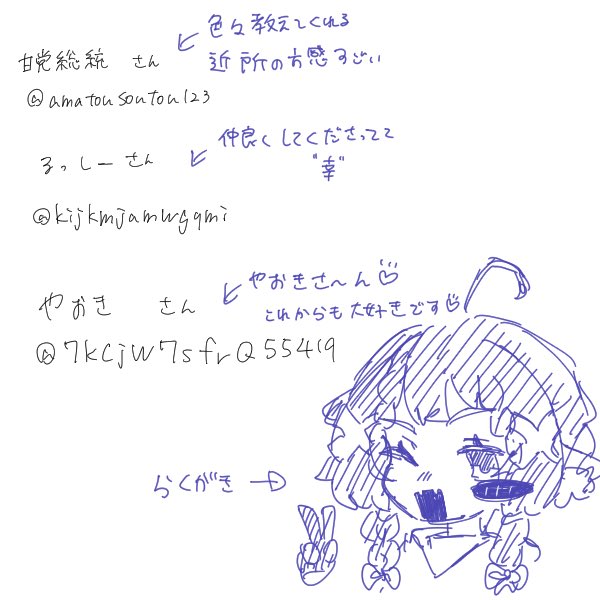 色々教えてくれる
近所の方感すごい
甘党総統 さん
@amatousoutou123
仲良くしてくださってて
"幸"
るっしーさん
@kijkmjamwgqmi
やおきさ〜ん♡
これからも大好きです♡
やおき さん
@7kCjW7sfrQ55419
らくがき